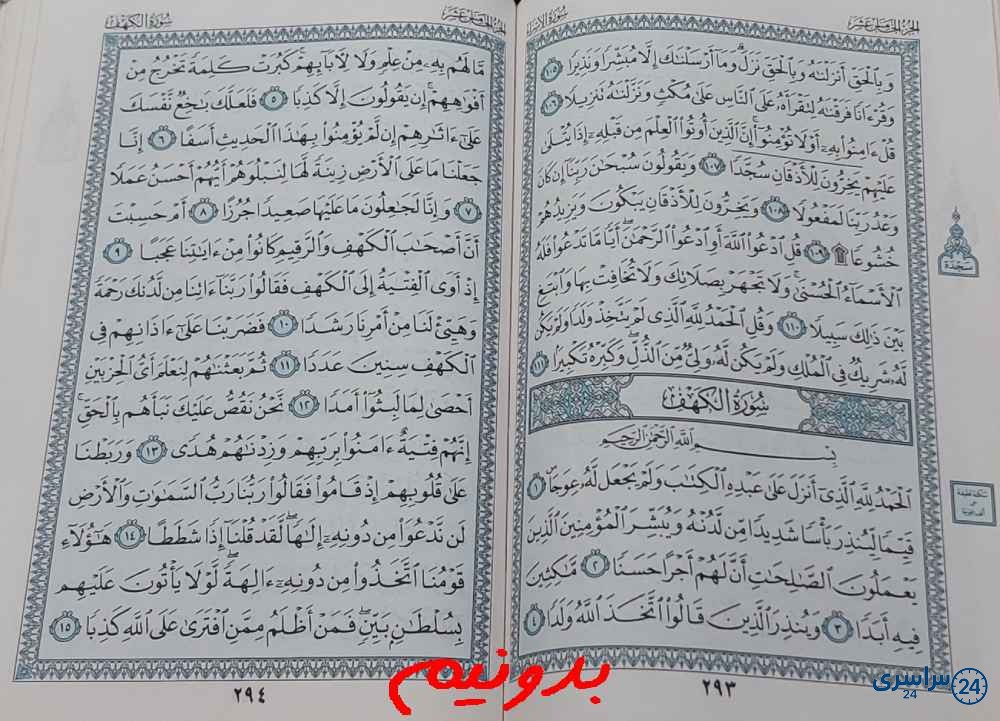 الجزء الخامس عشر
سورة الإسراء
وَبِالْحَقِّ أَنزَلْنَٰهُ وَبِالْحَقِّ نَزَلَ ۗ وَمَآ أَرْسَلْنَٰكَ إِلَّا مُبَشِّرًا وَنَذِيرًا ١٠٥
وَقُرْءَانًا فَرَقْنَٰهُ لِتَقْرَأَهُۥ عَلَى ٱلنَّاسِ عَلَىٰ مُكْثٍ وَنَزَّلْنَٰهُ تَنزِيلًا ١٠٦
قُلْ ءَامِنُوا۟ بِهِۦٓ أَوْ لَا تُؤْمِنُوٓا۟ ۚ إِنَّ ٱلَّذِينَ أُوتُوا۟ ٱلْعِلْمَ مِن قَبْلِهِۦٓ إِذَا يُتْلَىٰ
عَلَيْهِمْ يَخِرُّونَ لِلْأَذْقَانِ سُجَّدًا ١٠٧ وَيَقُولُونَ سُبْحَٰنَ رَبِّنَآ إِن كَانَ
وَعْدُ رَبِّنَا لَمَفْعُولًا ١٠٨ وَيَخِرُّونَ لِلْأَذْقَانِ يَبْكُونَ وَيَزِيدُهُمْ
خُشُوعًا ۩ ١٠٩ قُلِ ٱدْعُوا۟ ٱللَّهَ أَوِ ٱدْعُوا۟ ٱلرَّحْمَٰنَ ۖ أَيًّا مَّا تَدْعُوا۟ فَلَهُ
ٱلْأَسْمَآءُ ٱلْحُسْنَىٰ ۚ وَلَا تَجْهَرْ بِصَلَاتِكَ وَلَا تُخَافِتْ بِهَا وَٱبْتَغِ
بَيْنَ ذَٰلِكَ سَبِيلًا ١١٠ وَقُلِ ٱلْحَمْدُ لِلَّهِ ٱلَّذِى لَمْ يَتَّخِذْ وَلَدًا وَلَمْ يَكُن
لَّهُۥ شَرِيكٌ فِى ٱلْمُلْكِ وَلَمْ يَكُن لَّهُۥ وَلِىٌّ مِّنَ ٱلذُّلِّ ۖ وَكَبِّرْهُ تَكْبِيرًۢا ١١١
سُورَةُ الكَهْفِ
بِسْمِ ٱللَّهِ ٱلرَّحْمَٰنِ ٱلرَّحِيمِ
ٱلْحَمْدُ لِلَّهِ ٱلَّذِىٓ أَنزَلَ عَلَىٰ عَبْدِهِ ٱلْكِتَٰبَ وَلَمْ يَجْعَل لَّهُۥ عِوَجَا ۜ ١
قَيِّمًا لِّيُنذِرَ بَأْسًا شَدِيدًا مِّن لَّدُنْهُ وَيُبَشِّرَ ٱلْمُؤْمِنِينَ ٱلَّذِينَ
يَعْمَلُونَ ٱلصَّٰلِحَٰتِ أَنَّ لَهُمْ أَجْرًا حَسَنًا ٢ مَّٰكِثِينَ
فِيهِ أَبَدًا ٣ وَيُنذِرَ ٱلَّذِينَ قَالُوا۟ ٱتَّخَذَ ٱللَّهُ وَلَدًا ٤
سجدة
٢٩٣
الجزء الخامس عشر
سورة الكهف
مَّا لَهُم بِهِۦ مِنْ عِلْمٍ وَلَا لِءَابَآئِهِمْ ۚ كَبُرَتْ كَلِمَةً تَخْرُجُ مِنْ
أَفْوَٰهِهِمْ ۚ إِن يَقُولُونَ إِلَّا كَذِبًا ٥ فَلَعَلَّكَ بَٰخِعٌ نَّفْسَكَ
عَلَىٰٓ ءَاثَٰرِهِمْ إِن لَّمْ يُؤْمِنُوا۟ بِهَٰذَا ٱلْحَدِيثِ أَسَفًا ٦ إِنَّا
جَعَلْنَا مَا عَلَى ٱلْأَرْضِ زِينَةً لَّهَا لِنَبْلُوَهُمْ أَيُّهُمْ أَحْسَنُ عَمَلًا
٧ وَإِنَّا لَجَٰعِلُونَ مَا عَلَيْهَا صَعِيدًا جُرُزًا ٨ أَمْ حَسِبْتَ
أَنَّ أَصْحَٰبَ ٱلْكَهْفِ وَٱلرَّقِيمِ كَانُوا۟ مِنْ ءَايَٰتِنَا عَجَبًا ٩
إِذْ أَوَى ٱلْفِتْيَةُ إِلَى ٱلْكَهْفِ فَقَالُوا۟ رَبَّنَآ ءَاتِنَا مِن لَّدُنكَ رَحْمَةً
وَهَيِّئْ لَنَا مِنْ أَمْرِنَا رَشَدًا ١٠ فَضَرَبْنَا عَلَىٰٓ ءَاذَانِهِمْ فِى
ٱلْكَهْفِ سِنِينَ عَدَدًا ١١ ثُمَّ بَعَثْنَٰهُمْ لِنَعْلَمَ أَىُّ ٱلْحِزْبَيْنِ
أَحْصَىٰ لِمَا لَبِثُوٓا۟ أَمَدًا ١٢ نَّحْنُ نَقُصُّ عَلَيْكَ نَبَأَهُم بِٱلْحَقِّ ۚ
إِنَّهُمْ فِتْيَةٌ ءَامَنُوا۟ بِرَبِّهِمْ وَزِدْنَٰهُمْ هُدًى ١٣ وَرَبَطْنَا
عَلَىٰ قُلُوبِهِمْ إِذْ قَامُوا۟ فَقَالُوا۟ رَبُّنَا رَبُّ ٱلسَّمَٰوَٰتِ وَٱلْأَرْضِ
لَن نَّدْعُوَا۟ مِن دُونِهِۦٓ إِلَٰهًا ۖ لَّقَدْ قُلْنَآ إِذًا شَطَطًا ١٤ هَٰٓؤُلَآءِ
قَوْمُنَا ٱتَّخَذُوا۟ مِن دُونِهِۦٓ ءَالِهَةً ۖ لَّوْلَا يَأْتُونَ عَلَيْهِم
بِسُلْطَٰنٍۭ بَيِّنٍ ۖ فَمَنْ أَظْلَمُ مِمَّنِ ٱفْتَرَىٰ عَلَى ٱللَّهِ كَذِبًا ١٥
٢٩٤
بدونیم
سراسری 24
24